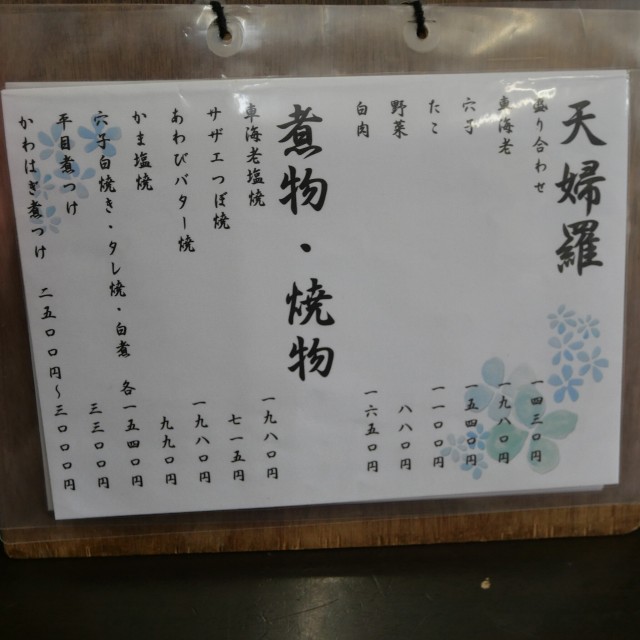 天婦羅
盛り合わせ 一四三〇円
車海老 一九八〇円
穴子 一五四〇円
たこ 一一〇〇円
野菜 八八〇円
白肉 一六五〇円
煮物・焼物
車海老塩焼 一九八〇円
サザエつぼ焼 七一五円
あわびバター焼 一九八〇円
かま塩焼 九九〇円
穴子白焼き・タレ焼・白煮 各一五四〇円
平目煮つけ 三三〇〇円
かわはぎ煮つけ 二五〇〇円〜三〇〇〇円